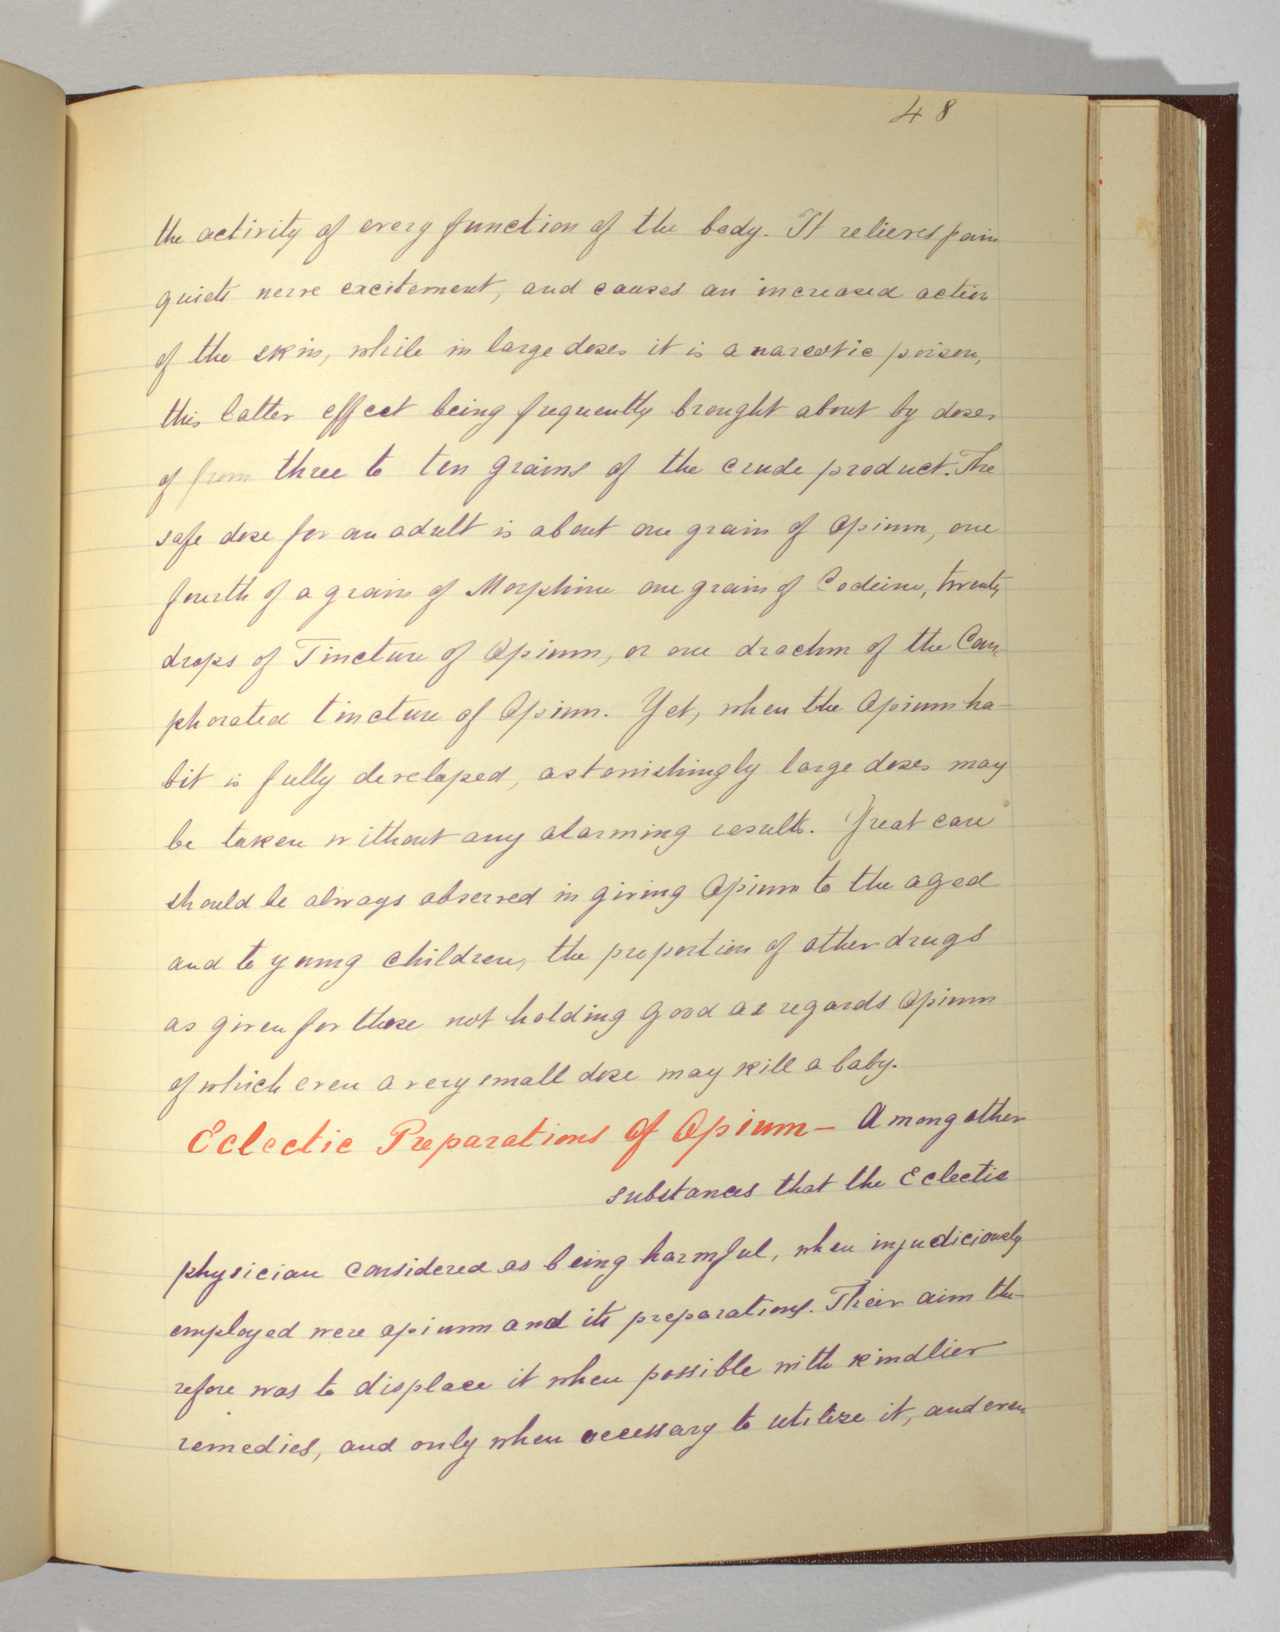 48
the activity of every function of the body. It relieves pain
quiets nerve excitement, and causes an increased action
of the skin, while in large doses it is a narcotic poison,
this latter effect being frequently brought about by doses
of from three to ten grains of the crude product. The
safe dose for an adult is about one grain of Opium, one
fourth of a grain of Morphine one grain of Codeine, twenty
drops of Tincture of Opium, or one drachm of the Cam
phorated tincture of Opium. Yet, when the Opium ha-
bit is fully developed, astonishingly large doses may
be taken without any alarming results. Great care
should be always observed in giving Opium to the aged
and to young children, the proportion of other drugs
as given for these not holding good as regards Opium
of which even a very small dose may kill a baby.
Eclectic Preparations Of Opium — Among other
substances that the Eclectic
physician considered as being harmful, when injudiciously
employed were opium and its preparations. Their aim the-
refore was to displace it when possible with kindlier
remedies, and only when necessary to utilize it, and even